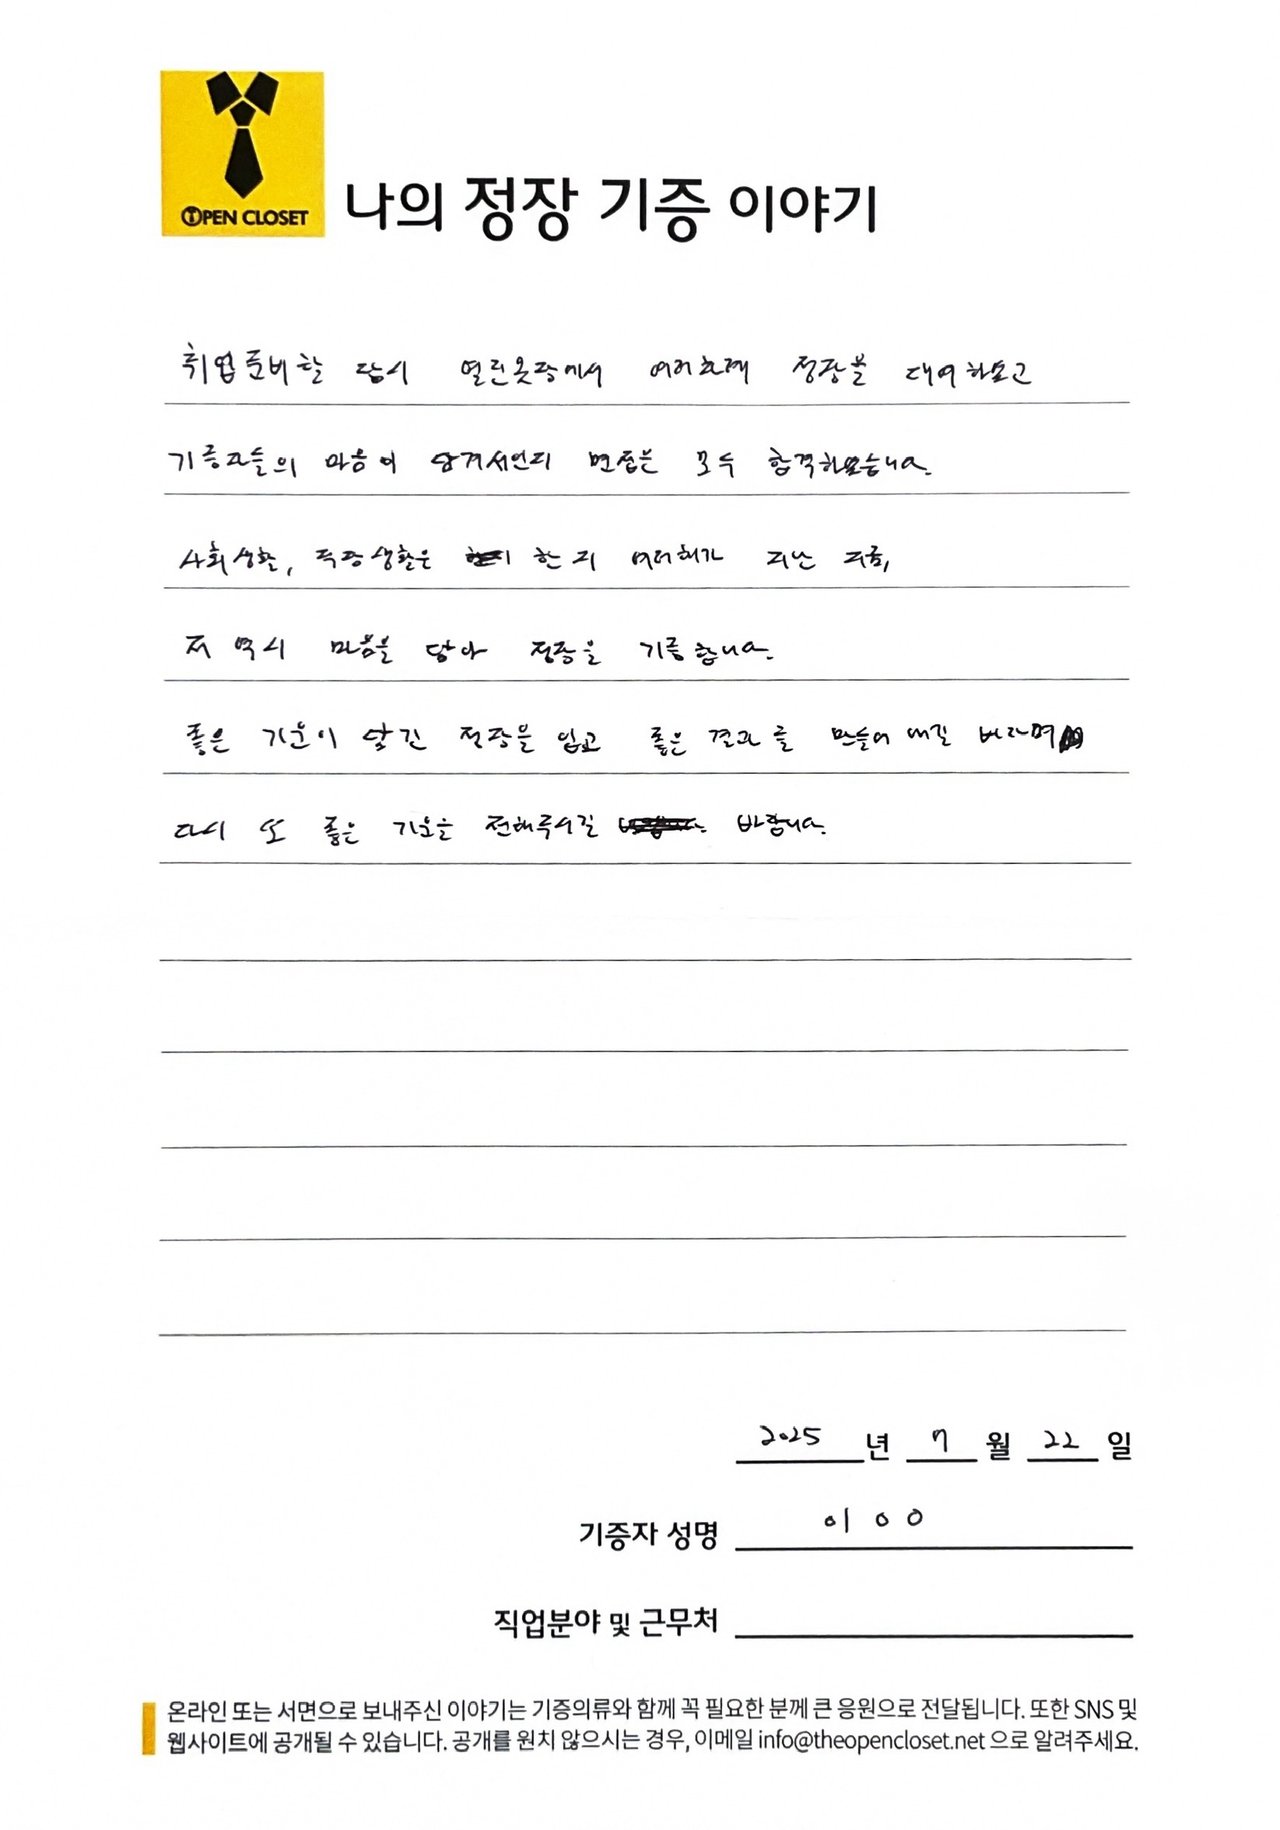 OPEN CLOSET
나의 정장 기증 이야기
취업준비할 당시 열린옷장에서 여러차례 정장을 대여하였고
기증자들의 마음이 담겨서인지 면접을 모두 합격하였습니다.
사회생활, 직장생활은 한 지 여러해가 지난 지금,
저 역시 마음을 담아 정장을 기증합니다.
좋은 기운이 담긴 정장을 입고 좋은 결과를 만들어 내길 바라며
다시 또 좋은 기운을 전해주시길 바랍니다.
2025 년 7 월 22 일
기증자 성명 이 O O
직업분야 및 근무처
온라인 또는 서면으로 보내주신 이야기는 기증의류와 함께 꼭 필요한 분께 큰 응원으로 전달됩니다. 또한 SNS 및
웹사이트에 공개될 수 있습니다. 공개를 원치 않으시는 경우, 이메일 info@theopencloset.net 으로 알려주세요.